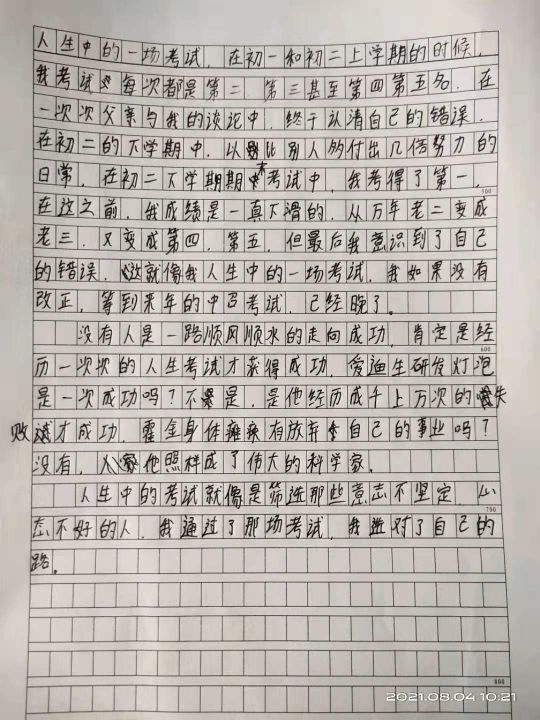 人生中的一场考试。在初一和初二上学期的时候,
我考试每次都是第二、第三甚至第四第五名。在
一次次父亲与我的谈论中,终于认清自己的错误。
在初二的下学期中,以比别人多付出几倍努力的
日常,在初二下学期期末考试中,我考得了第一。
500
在这之前,我成绩是一直下滑的,从万年老二变成
老三,又变成第四、第五,但最后我意识到了自己
的错误,这就像我人生中的一场考试,我如果没有
改正,等到来年的中召考试,已经晚了。
没有人是一路顺风顺水的走向成功,肯定是经
600
历一次次的人生考试才获得成功,爱迪生研发灯泡
是一次成功吗?不是,是他经历成千上万次的失
败才成功,霍金身体瘫痪有放弃自己的事业吗?
没有,他照样成了伟大的科学家。
人生中的考试就像是筛选那些意志不坚定,心
700
态不好的人,我通过了那场考试,我选对了自己的
路。
800
2021.08.04 10:21